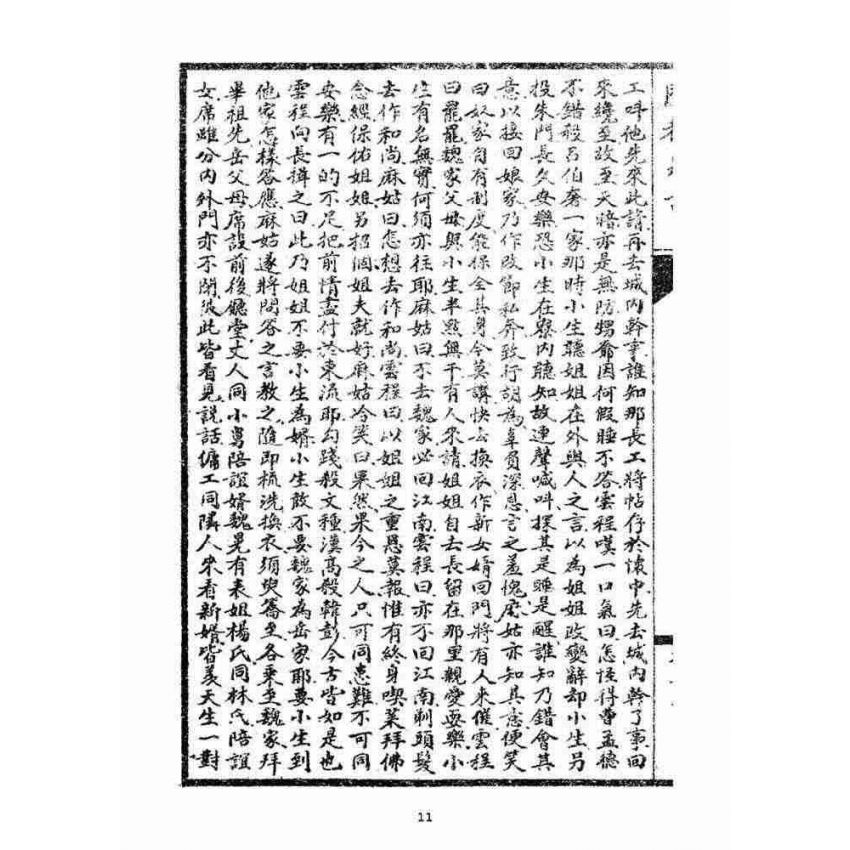 工呌他先來此請再去城內幹事誰知那長工將帖存於懷中先去城內幹了事回
來纔至故至天暗亦是無防甥爺因何假睡不答雲程嘆一口氣曰怎怪得曹孟德
不錯殺呂伯奢一家那時小生聽姐姐在外與人之言以為姐姐改變辭却小生另
投朱門長久安樂恐小生在寮內聽知故連聲喊呌探其是睡是醒誰知乃錯會其
意以接回娘家乃作改節私奔致行胡為辜負深恩言之羞愧麻姑亦知其意便笑
曰奴家自有制度能保全其身今莫講快去換衣作新女婿回門將有人來催雲程
曰罷罷魏家父母與小生半點無干有人來請姐姐自去長留在那里親愛耍樂小
生有名無實何須亦往耶麻姑曰不去魏家必回江南雲程曰亦不回江南剃頭髮
去作和尚麻姑曰怎想去作和尚雲程曰以姐姐之重恩莫報惟有終身喫菜拜佛
念經保佑姐姐另招個姐夫就好麻姑冷笑曰果然果今之人只可同患難不可同
安樂有一的不足把前情盡付於東流耶勾踐殺文種漢高殺韓彭今古皆如是也
雲程向長揖之曰此乃姐姐不要小生為婿小生敢不要魏家為岳家耶要小生到
他家怎樣答應麻姑遂將問答之言教之隨即梳洗換衣須臾轎至各乘至魏家拜
畢祖先岳父母席設前後廳堂丈人同小舅陪誼婿魏晃有表姐楊氏同林氏陪誼
女席雖分內外門亦不閉彼此皆看見說話傭工同隣人來看新婿皆羨天生一對
11